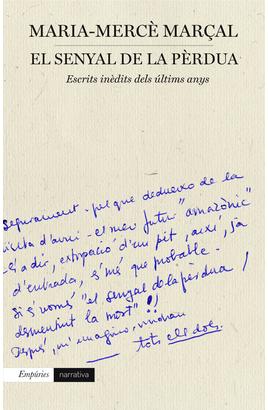 MARIA-MERCÈ MARÇAL
EL SENYAL DE LA PÈRDUA
Escrits inèdits dels últims anys
Segurament -pel que dedueixo de la
visita d'avui- el meu futur "amazònic"
-és a dir, extirpació d'un pit, així, ja
d'entrada, és més que probable.
Si és només "el senyal de la pèrdua/
desmentint la mort"!!
Després, m'imagino, vindran
tots els dols.
Empúries narrativa